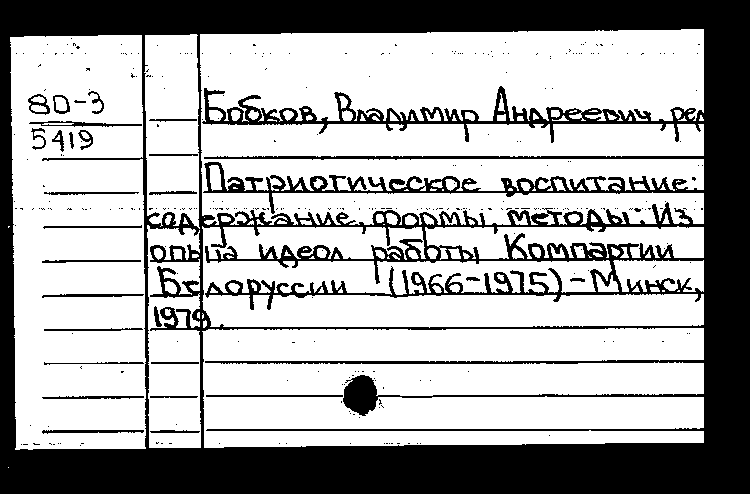 80-3
5419
Бобков, Владимир Андреевич, ред
Патриотическое воспитание:
содержание, формы, методы: Из
опыта идеол. работы Компартии
Белоруссии (1966-1975)-Минск,
1979.